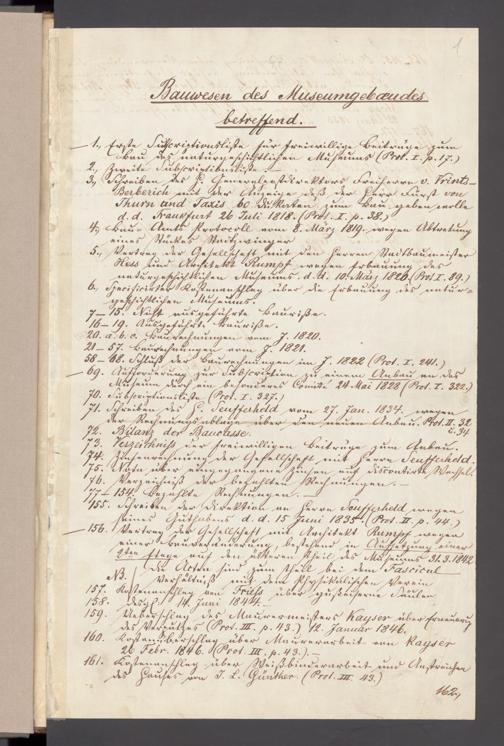 1
Bauwesen des Museumgebaeudes
betreffend.
1, Erste Subscriptionsliste für freiwillige Beiträge zum
Bau des naturgeschichtlichen Museums (Prot. I. p. 17.)
2, Zweite Subscriptionsliste.
3, Schreiben des Generalpostdirektors Freiherrn v. Vrints-
Berberich mit der Anzeige daß der Herr Fürst von
Thurn und Taxis 60 Dukaten zum Bau geben wolle
d. d. Frankfurt 26 Juli 1818. (Prot. I. p. 38.)
4, Bau-Amts Protocoll vom 8. März 1819. wegen Abtretung
eines Stückes Stadtzwinger
5, Vertrag der Gesellschaft mit den Herren Stadtbaumeister
Hess und Architekt Rumpf wegen Erbauung des
naturgeschichtlichen Museums d. d. 10. März 1820. (Prot. I. 89.)
6, Specificirter Kostenanschlag über die Erbauung des natur-
geschichtlichen Museums.
7–15. Nicht ausgeführte Baurisse.
16–19. Ausgeführte Baurisse.
20. a. b. c. Baurechnungen vom J. 1820.
21–57. Baurechnungen vom J. 1821.
58–68. Schluß der Baurechnungen im J. 1822 (Prot. I. 241.)
69. Aufforderung zur Subscription zu einem Anbau an das
Museum durch ein besonderes Comité 24 Mai 1828 (Prot. I. 322.)
70. Subscriptionsliste (Prot. I. 327.)
71. Schreiben des H. Seufferheld vom 27. Jan. 1834. wegen
der Rechnungsablage über den neuen Anbau. Prot. II. 32
u. 34
72. Bilanz der Baucasse.
73. Verzeichniß der freiwilligen Beiträge zum Anbau.
74. Zinsenrechnung der Gesellschaft mit Herrn Seufferheld.
75. Nota über eingegangene Zinsen auf discontirte Wechsel.
76. Verzeichniß der bezahlten Rechnungen.
77–154. Bezahlte Rechnungen.
155. Schreiben der Direktion an Herrn Seufferheld wegen
seines Guthabens d. d. 15 Juni 1835. (Prot. II. p. 44.)
156. Vertrag der Gesellschaft mit Architekt Rumpf wegen
einer Bauveränderung bestehend in Aufsetzung einer
2ten Etage auf den älteren Theil des Museums 31.3.1842
NB. Die Acten sind zum Theil bei dem Fascicul
Verhältniß mit dem Physikalischen Verein
157. Kostenanschlag von Friess über gusseiserne Säulen
158. desgl. 14. Juni 1844.
159. Ueberschlag des Maurermeisters Kayser über Erneuerung
des Verputzes (Prot. III. p. 43.) 12. Januar 1846.
160. Kostenüberschlag über Maurerarbeit von Kayser
26 Febr. 1846. (Prot. III. p. 43.)
161. Kostenanschlag über Weißbinderarbeit und Anstreichen
des Hauses von J. L. Günther. (Prot. III. 43.)
162,